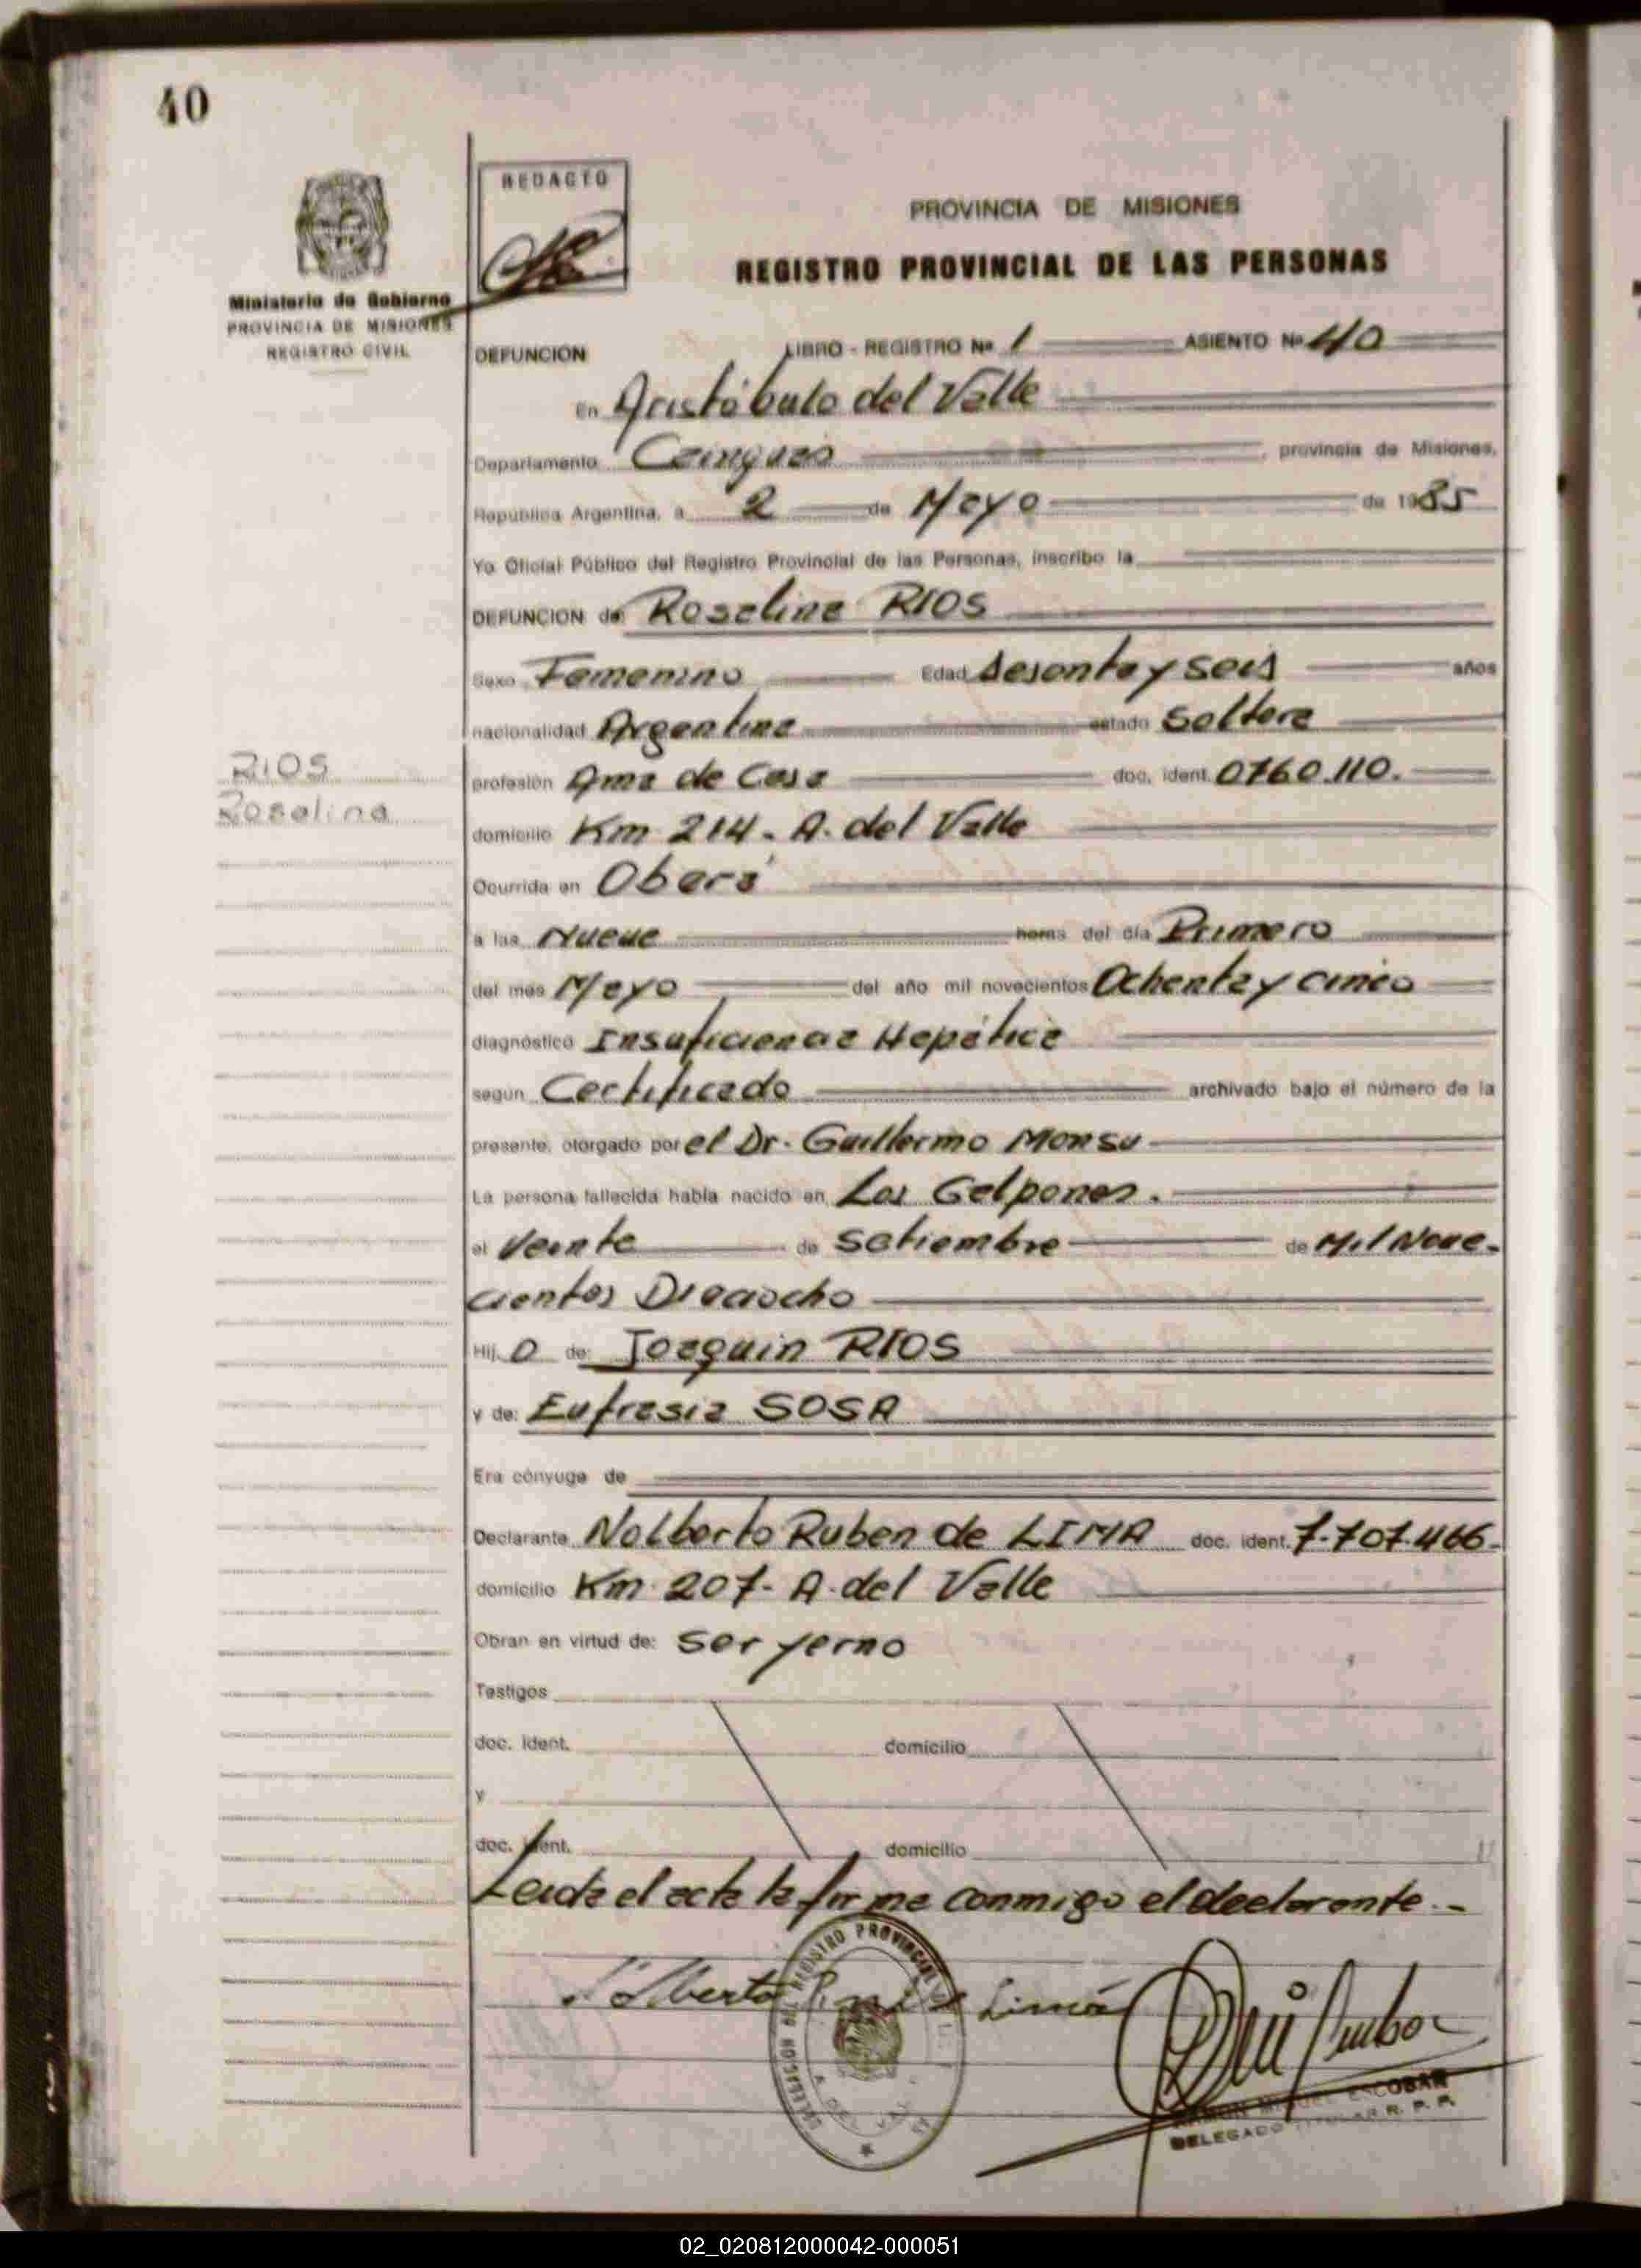 40
REDACTO
PROVINCIA DE MISIONES
REGISTRO PROVINCIAL DE LAS PERSONAS
Ministerio de Gobierno
PROVINCIA DE MISIONES
REGISTRO CIVIL
DEFUNCION LIBRO - REGISTRO Nº 1 ASIENTO Nº 40
En Aristóbulo del Valle
Departamento Cainguas , provincia de Misiones,
República Argentina, a 2 de Mayo de 1985
Yo Oficial Público del Registro Provincial de las Personas, inscribo la
DEFUNCION de: Roselina RIOS
Sexo Femenino Edad Sesenta y seis años
nacionalidad Argentina estado Soltera
RIOS
Roselina
profesión Ama de Casa doc. ident. 0760.110.
domicilio Km 214 - A. del Valle
Ocurrida en Oberá
a las Nueve horas del día Primero
del mes Mayo del año mil novecientos Ochenta y cinco
diagnóstico Insuficiencia Hepática
según Certificado archivado bajo el número de la
presente, otorgado por el Dr. Guillermo Monsu
La persona fallecida había nacido en Los Galpones.
el Veinte de Setiembre de Mil Nove-
cientos Dieciocho
Hij O de: Joaquin RIOS
y de: Eufrasia SOSA
Era cónyuge de
Declarante Nolberto Ruben de LIMA doc. ident. 7.707.466.
domicilio Km 207- A. del Valle
Obran en virtud de: ser yerno
Testigos
doc. ident. domicilio
y
doc. ident. domicilio
Leida el acta la firma conmigo el declarante.-
DELEGACION DEL REGISTRO PROVINCIAL
A. DEL VALLE
RAMON MIGUEL ESCOBAR
DELEGADO TITULAR R. P. P.
02_020812000042-000051